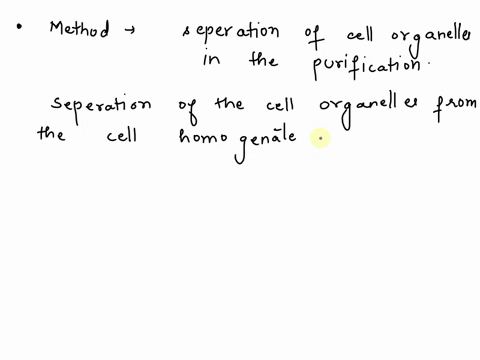 • Method → seperation of cell organelles
in the purification.
Seperation of the cell organelles from
the cell homogenate